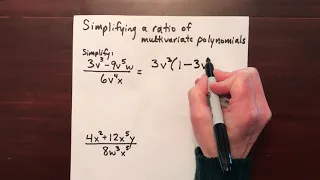 Simplifying a ratio of
multivariate polynomials
Simplify:
3v³-9v⁵w / 6v⁴x = 3v³(1-3v
4x²+12x⁵y / 8w³x⁵